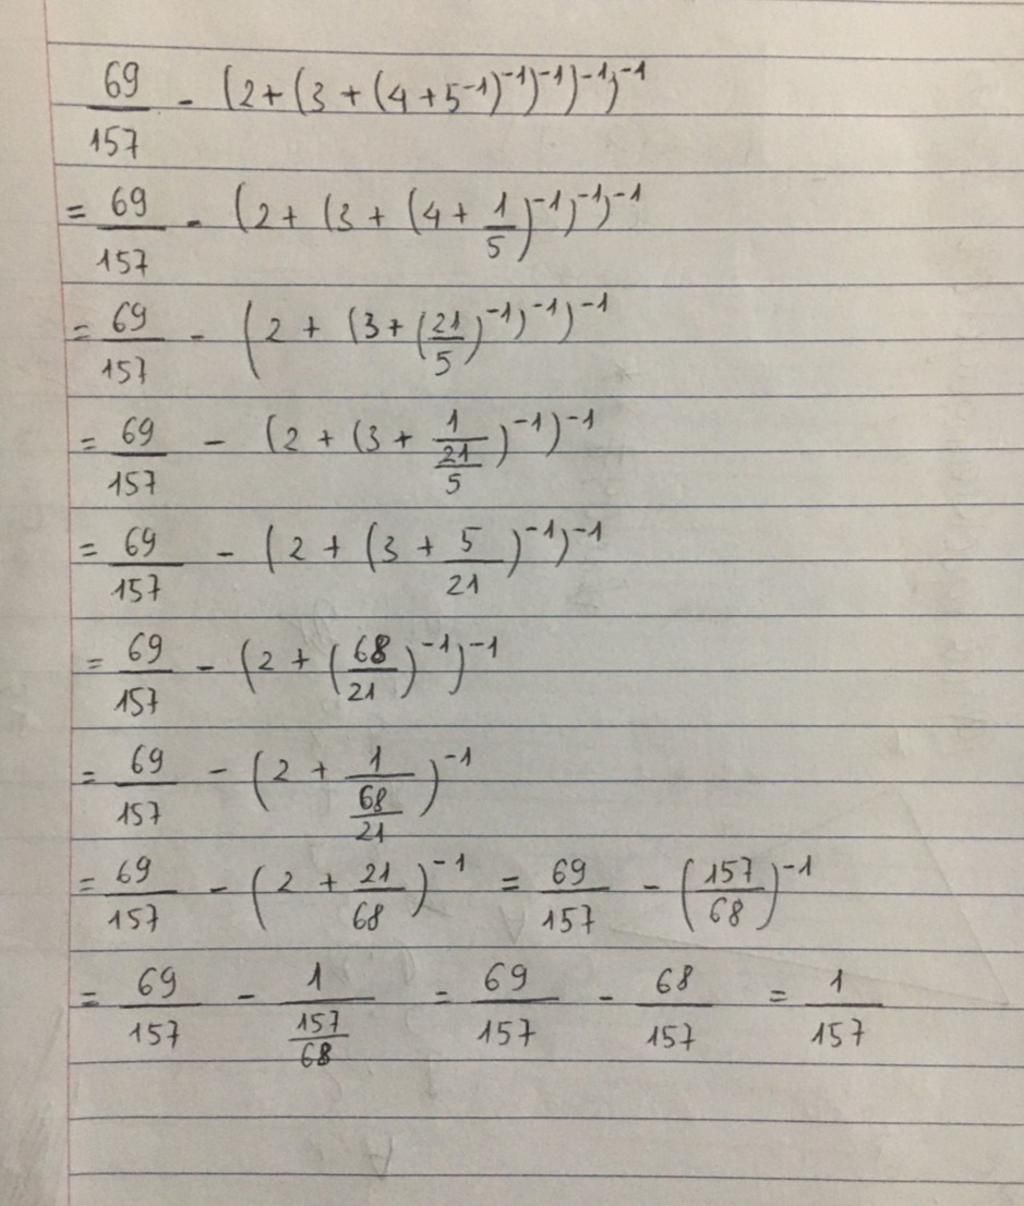 69/157 - (2+(3+(4+5⁻¹)⁻¹)⁻¹)⁻¹)⁻¹
= 69/157 - (2+(3+(4+1/5)⁻¹)⁻¹)⁻¹
= 69/157 - (2+(3+(21/5)⁻¹)⁻¹)⁻¹
= 69/157 - (2+(3+1/(21/5))⁻¹)⁻¹
= 69/157 - (2+(3+5/21)⁻¹)⁻¹
= 69/157 - (2+(68/21)⁻¹)⁻¹
= 69/157 - (2+1/(68/21))⁻¹
= 69/157 - (2+21/68)⁻¹ = 69/157 - (157/68)⁻¹
= 69/157 - 1/(157/68) = 69/157 - 68/157 = 1/157